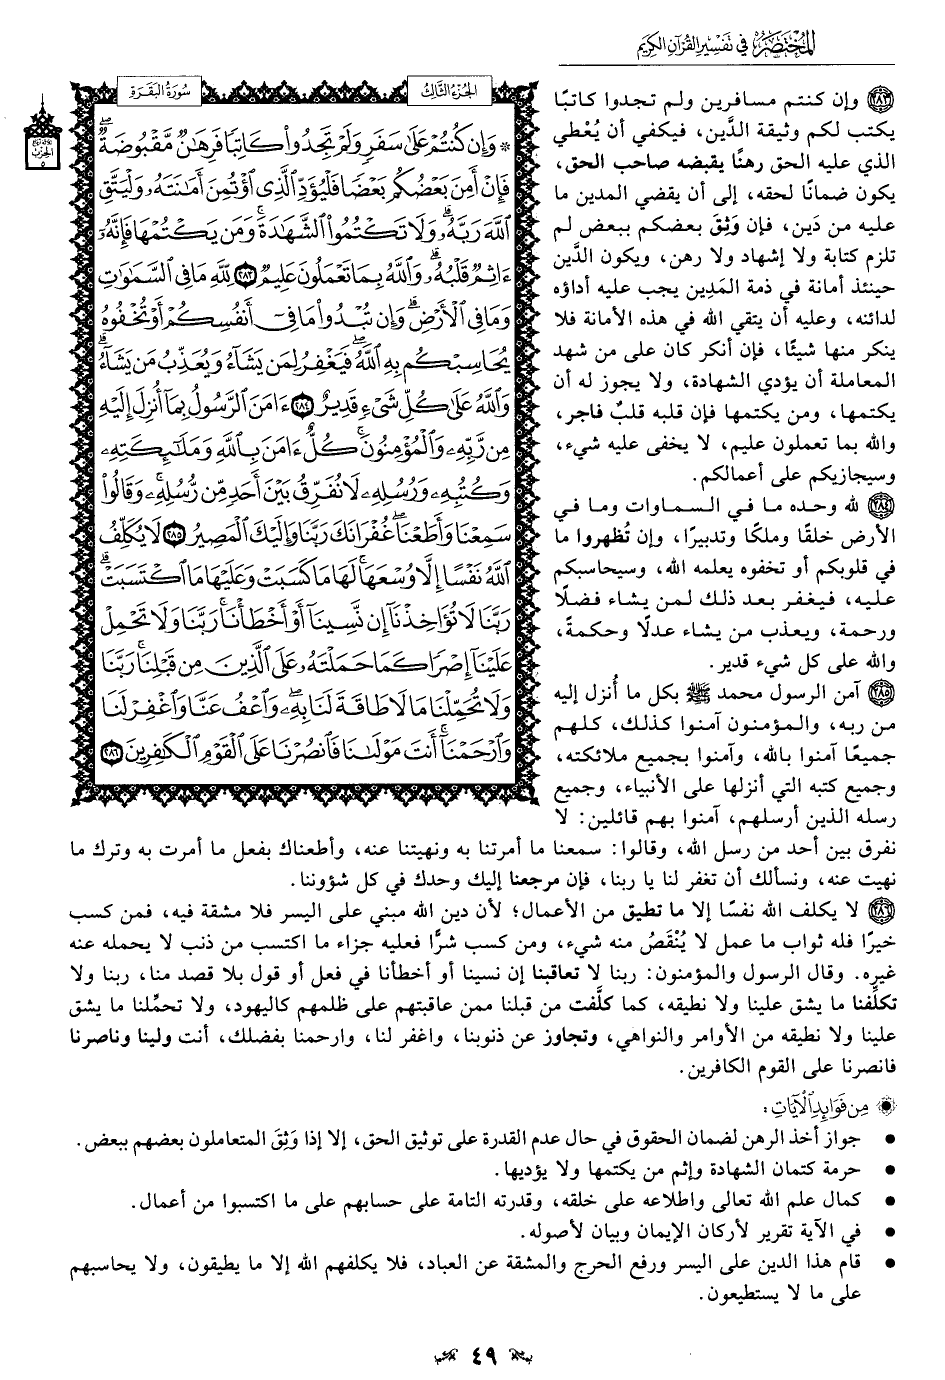 المختصر في تفسير القرآن الكريم
الجزء الثالث
سورة البقرة
۞ وَإِن كُنتُمْ عَلَىٰ سَفَرٍ وَلَمْ تَجِدُوا۟ كَاتِبًا فَرِهَـٰنٌ مَّقْبُوضَةٌ ۖ
فَإِنْ أَمِنَ بَعْضُكُم بَعْضًا فَلْيُؤَدِّ ٱلَّذِى ٱؤْتُمِنَ أَمَـٰنَتَهُۥ وَلْيَتَّقِ
ٱللَّهَ رَبَّهُۥ ۗ وَلَا تَكْتُمُوا۟ ٱلشَّهَـٰدَةَ ۚ وَمَن يَكْتُمْهَا فَإِنَّهُۥٓ
ءَاثِمٌ قَلْبُهُۥ ۗ وَٱللَّهُ بِمَا تَعْمَلُونَ عَلِيمٌ ٢٨٣ لِّلَّهِ مَا فِى ٱلسَّمَـٰوَٰتِ
وَمَا فِى ٱلْأَرْضِ ۗ وَإِن تُبْدُوا۟ مَا فِىٓ أَنفُسِكُمْ أَوْ تُخْفُوهُ
يُحَاسِبْكُم بِهِ ٱللَّهُ ۖ فَيَغْفِرُ لِمَن يَشَآءُ وَيُعَذِّبُ مَن يَشَآءُ ۗ
وَٱللَّهُ عَلَىٰ كُلِّ شَىْءٍ قَدِيرٌ ٢٨٤ ءَامَنَ ٱلرَّسُولُ بِمَآ أُنزِلَ إِلَيْهِ
مِن رَّبِّهِۦ وَٱلْمُؤْمِنُونَ ۚ كُلٌّ ءَامَنَ بِٱللَّهِ وَمَلَـٰٓئِكَتِهِۦ
وَكُتُبِهِۦ وَرُسُلِهِۦ لَا نُفَرِّقُ بَيْنَ أَحَدٍ مِّن رُّسُلِهِۦ ۚ وَقَالُوا۟
سَمِعْنَا وَأَطَعْنَا ۖ غُفْرَانَكَ رَبَّنَا وَإِلَيْكَ ٱلْمَصِيرُ ٢٨٥ لَا يُكَلِّفُ
ٱللَّهُ نَفْسًا إِلَّا وُسْعَهَا ۚ لَهَا مَا كَسَبَتْ وَعَلَيْهَا مَا ٱكْتَسَبَتْ ۗ
رَبَّنَا لَا تُؤَاخِذْنَآ إِن نَّسِينَآ أَوْ أَخْطَأْنَا ۚ رَبَّنَا وَلَا تَحْمِلْ
عَلَيْنَآ إِصْرًا كَمَا حَمَلْتَهُۥ عَلَى ٱلَّذِينَ مِن قَبْلِنَا ۚ رَبَّنَا
وَلَا تُحَمِّلْنَا مَا لَا طَاقَةَ لَنَا بِهِۦ ۖ وَٱعْفُ عَنَّا وَٱغْفِرْ لَنَا
وَٱرْحَمْنَآ ۚ أَنتَ مَوْلَىٰنَا فَٱنصُرْنَا عَلَى ٱلْقَوْمِ ٱلْكَـٰفِرِينَ ٢٨٦
٢٨٣ وإن كنتم مسافرين ولم تجدوا كاتبًا
يكتب لكم وثيقة الدَّين، فيكفي أن يُعْطي
الذي عليه الحق رهنًا يقبضه صاحب الحق،
يكون ضمانًا لحقه، إلى أن يقضي المدين ما
عليه من دَين، فإن وَثِقَ بعضكم ببعض لم
تلزم كتابة ولا إشهاد ولا رهن، ويكون الدَّين
حينئذ أمانة في ذمة المَدِين يجب عليه أداؤه
لدائنه، وعليه أن يتقي الله في هذه الأمانة فلا
ينكر منها شيئًا، فإن أنكر كان على من شهد
المعاملة أن يؤدي الشهادة، ولا يجوز له أن
يكتمها، ومن يكتمها فإن قلبه قلبٌ فاجر،
والله بما تعملون عليم، لا يخفى عليه شيء،
وسيجازيكم على أعمالكم.
٢٨٤ لله وحده ما في السماوات وما في
الأرض خلقًا وملكًا وتدبيرًا، وإن تُظهروا ما
في قلوبكم أو تخفوه يعلمه الله، وسيحاسبكم
عليه، فيغفر بعد ذلك لمن يشاء فضلًا
ورحمة، ويعذب من يشاء عدلًا وحكمةً،
والله على كل شيء قدير.
٢٨٥ آمن الرسول محمد ﷺ بكل ما أُنزل إليه
من ربه، والمؤمنون آمنوا كذلك، كلهم
جميعًا آمنوا بالله، وآمنوا بجميع ملائكته،
وجميع كتبه التي أنزلها على الأنبياء، وجميع
رسله الذين أرسلهم، آمنوا بهم قائلين: لا
نفرق بين أحد من رسل الله، وقالوا: سمعنا ما أمرتنا به ونهيتنا عنه، وأطعناك بفعل ما أمرت به وترك ما
نهيت عنه، ونسألك أن تغفر لنا يا ربنا، فإن مرجعنا إليك وحدك في كل شؤوننا.
٢٨٦ لا يكلف الله نفسًا إلا ما تطيق من الأعمال؛ لأن دين الله مبني على اليسر فلا مشقة فيه، فمن كسب
خيرًا فله ثواب ما عمل لا يُنْقَصُ منه شيء، ومن كسب شرًّا فعليه جزاء ما اكتسب من ذنب لا يحمله عنه
غيره. وقال الرسول والمؤمنون: ربنا لا تعاقبنا إن نسينا أو أخطأنا في فعل أو قول بلا قصد منا، ربنا ولا
تكلِّفنا ما يشق علينا ولا نطيقه، كما كلَّفت من قبلنا ممن عاقبتهم على ظلمهم كاليهود، ولا تحمِّلنا ما يشق
علينا ولا نطيقه من الأوامر والنواهي، وتجاوز عن ذنوبنا، واغفر لنا، وارحمنا بفضلك، أنت ولينا وناصرنا
فانصرنا على القوم الكافرين.
من فوائد الآيات:
• جواز أخذ الرهن لضمان الحقوق في حال عدم القدرة على توثيق الحق، إلا إذا وَثِقَ المتعاملون بعضهم ببعض.
• حرمة كتمان الشهادة وإثم من يكتمها ولا يؤديها.
• كمال علم الله تعالى واطلاعه على خلقه، وقدرته التامة على حسابهم على ما اكتسبوا من أعمال.
• في الآية تقرير لأركان الإيمان وبيان لأصوله.
• قام هذا الدين على اليسر ورفع الحرج والمشقة عن العباد، فلا يكلفهم الله إلا ما يطيقون، ولا يحاسبهم
على ما لا يستطيعون.
٤٩